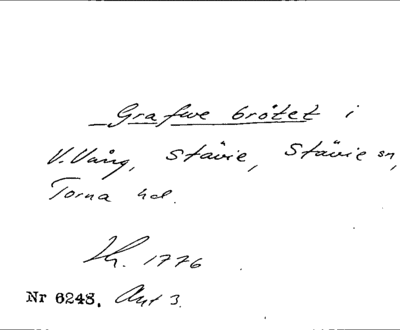 Grafwe brötet i
V. Vång, Stävie, Stävie sn,
Torna hd.
Lh. 1776
Nr 6248. Akt 3.